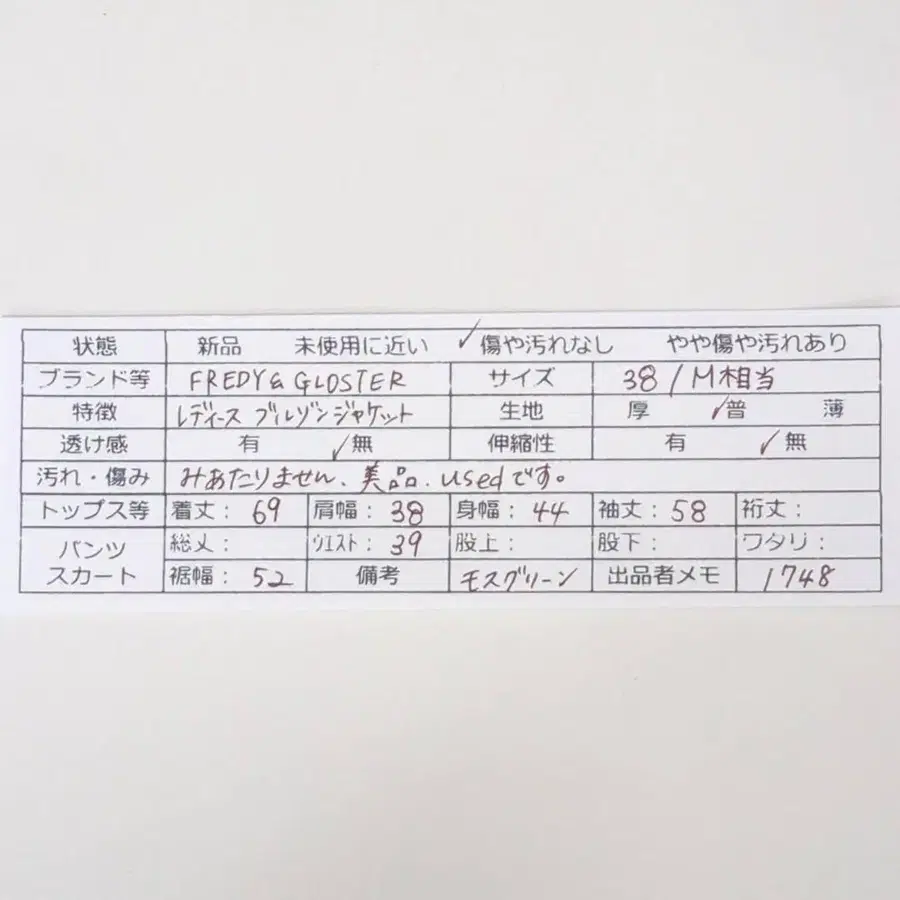 状態 新品 未使用に近い ✓傷や汚れなし やや傷や汚れあり
ブランド等 FREDY & GLOSTER サイズ 38 / M相当
特徴 レディース ブルゾンジャケット 生地 厚 ✓普 薄
透け感 有 ✓無 伸縮性 有 ✓無
汚れ・傷み みあたりません、美品、usedです。
トップス等 着丈: 69 肩幅: 38 身幅: 44 袖丈: 58 裄丈:
パンツ スカート 総丈: ウエスト: 39 股上: 股下: ワタリ:
裾幅: 52 備考 モスグリーン 出品者メモ 1748